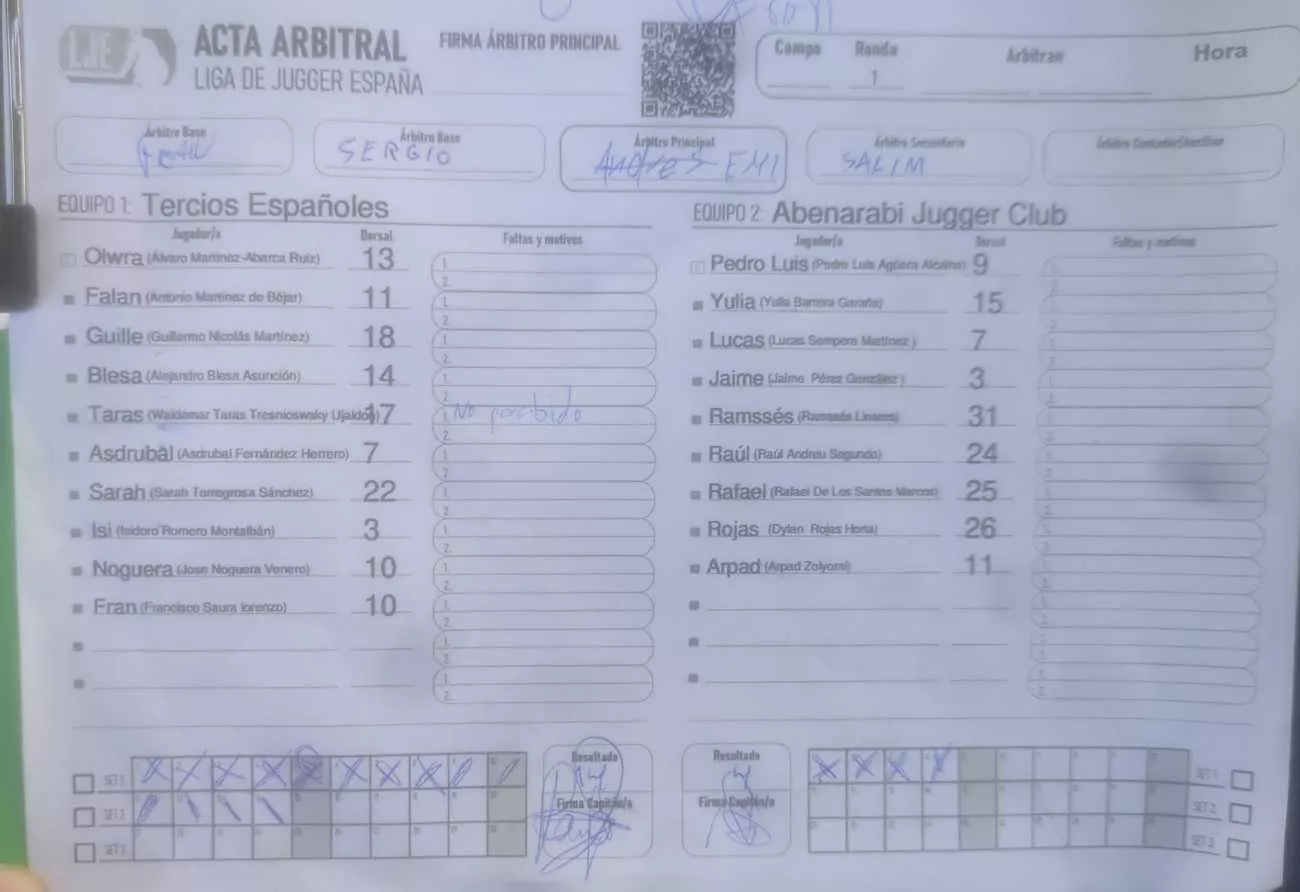 LJE
ACTA ARBITRAL
LIGA DE JUGGER ESPAÑA
FIRMA ÁRBITRO PRINCIPAL
Campo Ronda Arbitran Hora
1
Árbitro Base Árbitro Base Árbitro Principal Árbitro Secundario Árbitro Contador/Auxiliar
SERGIO Andres EMI SALIM
EQUIPO 1: Tercios Españoles
Jugador/a Dorsal Faltas y motivos
Olwra (Álvaro Martínez-Abarca Ruiz) 13
Falan (Antonio Martínez de Béjar) 11
Guille (Guillermo Nicolás Martínez) 18
Blesa (Alejandro Blesa Asunción) 14
Taras (Waldemar Taras Tresniowsky Ujaldón) 17 No
Asdrubal (Asdrubal Fernández Herrero) 7
Sarah (Sarah Torregrosa Sánchez) 22
Isi (Isidoro Romero Montalbán) 3
Noguera (Jose Noguera Venero) 10
Fran (Francisco Saura lorenzo) 10
EQUIPO 2: Abenarabi Jugger Club
Jugador/a Dorsal Faltas y motivos
Pedro Luis (Pedro Luis Agüera Alcaina) 9
Yulia (Yulia Barrera) 15
Lucas (Lucas Sempere Martínez ) 7
Jaime (Jaime Pérez González ) 3
Ramssés (Ramssés Linares) 31
Raúl (Raúl Andreu Segundo) 24
Rafael (Rafael De Los Santos Marcos) 25
Rojas (Dylan Rojas) 26
Arpad (Arpad Zolyomi) 11
SET 1
SET 2
SET 3
Resultado
14
Firma Capitán/a
Resultado
4
Firma Capitán/a
SET 1
SET 2
SET 3